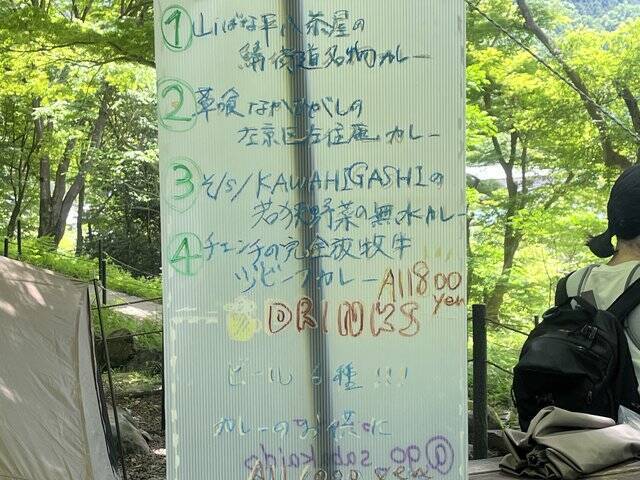 ① 山ばな平八茶屋の
鯖街道名物カレー
② 草喰なかひがしの
左京区左住庵カレー
③ そ/s/KAWAHIGASHIの
若狭野菜の無水カレー
④ チェンチの完全放牧牛
ジビーフカレー
All 800
yen
DRINKS
ビール6種!!!
カレーのお供に
@go_sabakaido
All 1000 yen